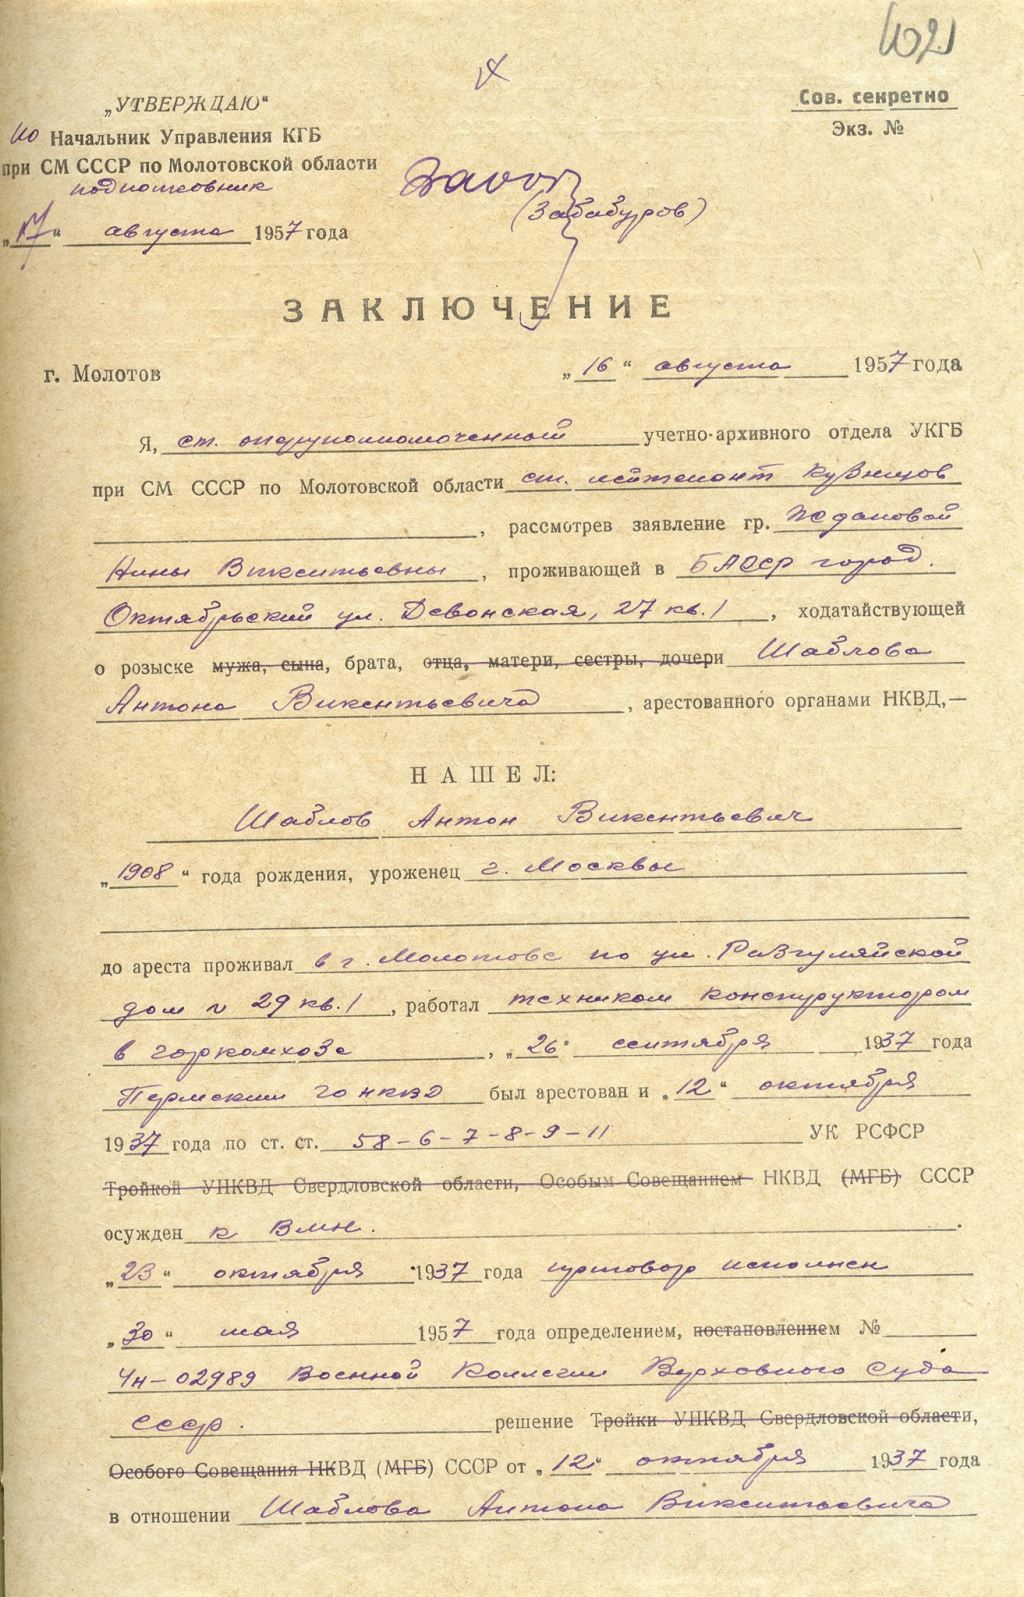 102
„УТВЕРЖДАЮ“
Сов. секретно
Начальник Управления КГБ
Экз. №
при СМ СССР по Молотовской области
подполковник
(Забабуров)
„17“ августа 1957 года
ЗАКЛЮЧЕНИЕ
г. Молотов „16“ августа 1957 года
Я, ст. оперуполномоченный учетно-архивного отдела УКГБ
при СМ СССР по Молотовской области ст. лейтенант Кузнецов
, рассмотрев заявление гр. Ждановой
Нины Викентьевны, проживающей в БАССР город.
Октябрьский ул. Девонская, 27 кв. 1, ходатайствующей
о розыске мужа, сына, брата, отца, матери, сестры, дочери Шаблова
Антона Викентьевича, арестованного органами НКВД,—
НАШЕЛ:
Шаблов Антон Викентьевич
„1908“ года рождения, уроженец г. Москвы
до ареста проживал в г. Молотове по ул. Разгуляйской
дом № 29 кв. 1, работал техником конструктором
в горкомхозе, „26“ сентября 1937 года
Пермским ГО НКВД был арестован и „12“ октября
1937 года по ст. ст. 58-6-7-8-9-11 УК РСФСР
Тройкой УНКВД Свердловской области, Особым Совещанием НКВД (МГБ) СССР
осужден к ВМН.
„23“ октября 1937 года приговор исполнен
„30“ мая 1957 года определением, постановлением №
4н-02989 Военной Коллегии Верховного Суда
СССР. решение Тройки УНКВД Свердловской области,
Особого Совещания НКВД (МГБ) СССР от „12“ октября 1937 года
в отношении Шаблова Антона Викентьевича